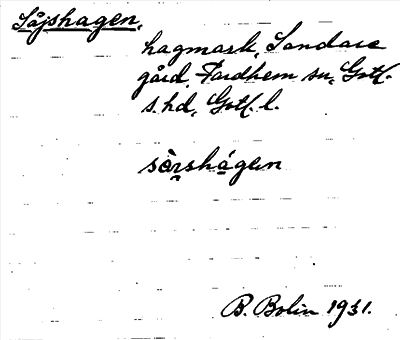 Såjshagen.
hagmark, Sandare
gård, Fardhem sn, Gotl.
s. hd, Gotl. l.
sòrshágen
B. Bolin 1931.